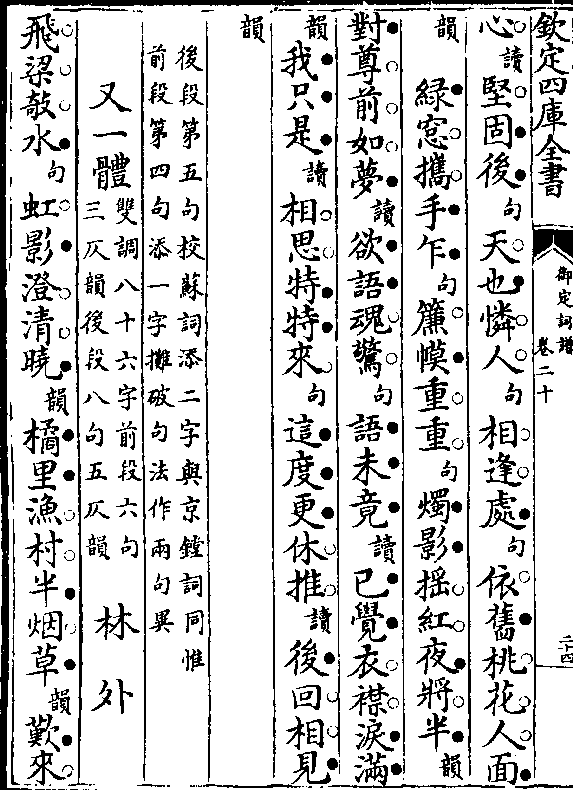 欽定四庫全書
御定詞譜 卷二十
二十四
心讀堅固後句天也憐人句相逢處句依舊桃花人面
韻
綠窓攜手乍句簾幙重重句燭影揺紅夜將半韻
對尊前如夢讀欲語魂驚句語未竟讀已覺衣襟淚滿
韻我只是讀相思特特來句這度更休推讀後回相見
韻
後段第五句校蘇詞添二字與京鏜詞同惟
前段第四句添一字攤破句法作兩句異
又一體雙調八十六字前段六句
三仄韻後段八句五仄韻 林外
飛梁敧水句虹影澄清曉韻橘里漁村半烟草韻歎來